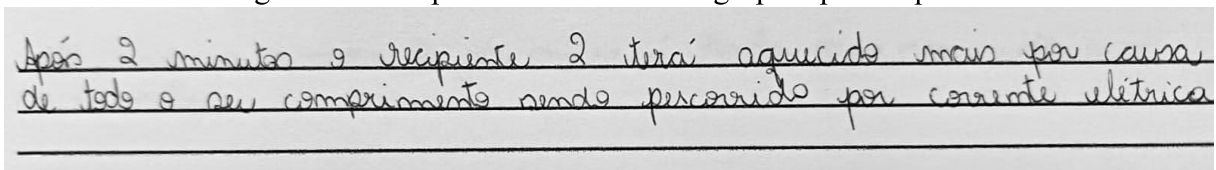 Após 2 minutos o recipiente 2 terá aquecido mais por causa
de todo o seu comprimento sendo percorrido por corrente elétrica